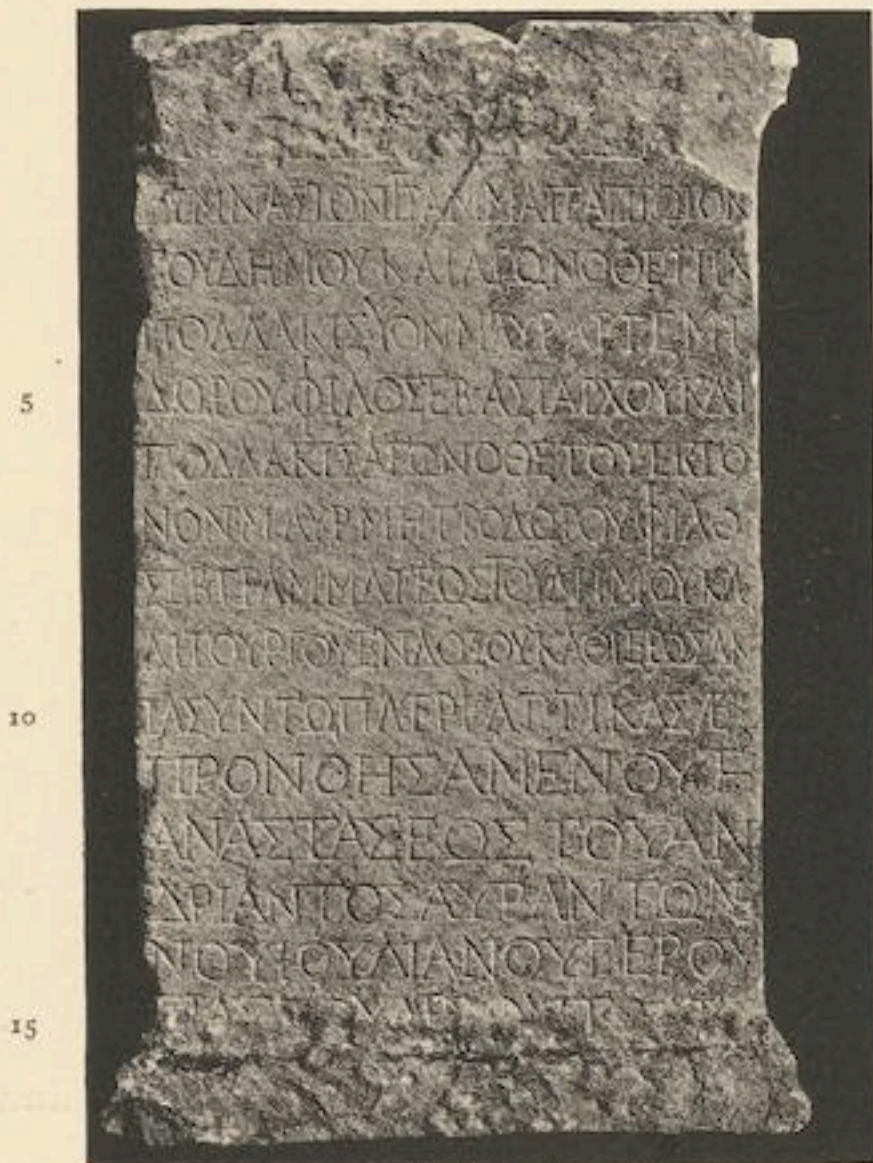 ΤΟΥ ΔΗΜΟΥ ΚΑΙ ΑΓΩΝΟΘΕΤΗΝ
ΠΟΛΛΑΚΙΣ ΥΟΝ Μ ΑΥΡ ΑΡΤΕΜΙ
5 ΔΩΡΟΥ ΦΙΛΟΣΕΒ ΑΣΙΑΡΧΟΥ ΚΑΙ
ΠΟΛΛΑΚΙΣ ΑΓΩΝΟΘΕΤΟΥ ΕΚΓΟ
ΝΟΝ Μ ΑΥΡ ΜΗΤΡΟΔΩΡΟΥ ΦΙΛΟ
ΣΕΒ ΓΡΑΜΜΑΤΕΩΣ ΤΟΥ ΔΗΜΟΥ ΚΑ
ΛΙΤΟΥΡΓΟΥ ΕΝΔΟΞΟΥ ΚΑΘΙΕΡΩΣΑΝ
10 ΤΑ ΣΥΝ ΤΩ
ΠΡΟΝΟΗΣΑΜΕΝΟΥ
ΑΝΑΣΤΑΣΕΩΣ ΤΟΥ ΑΝ
ΔΡΙΑΝΤΟΣ ΑΥΡ ΑΝΤΩΝ
ΝΟΥ ΙΟΥΛΙΑΝΟΥ ΓΕΡΟΥ
15